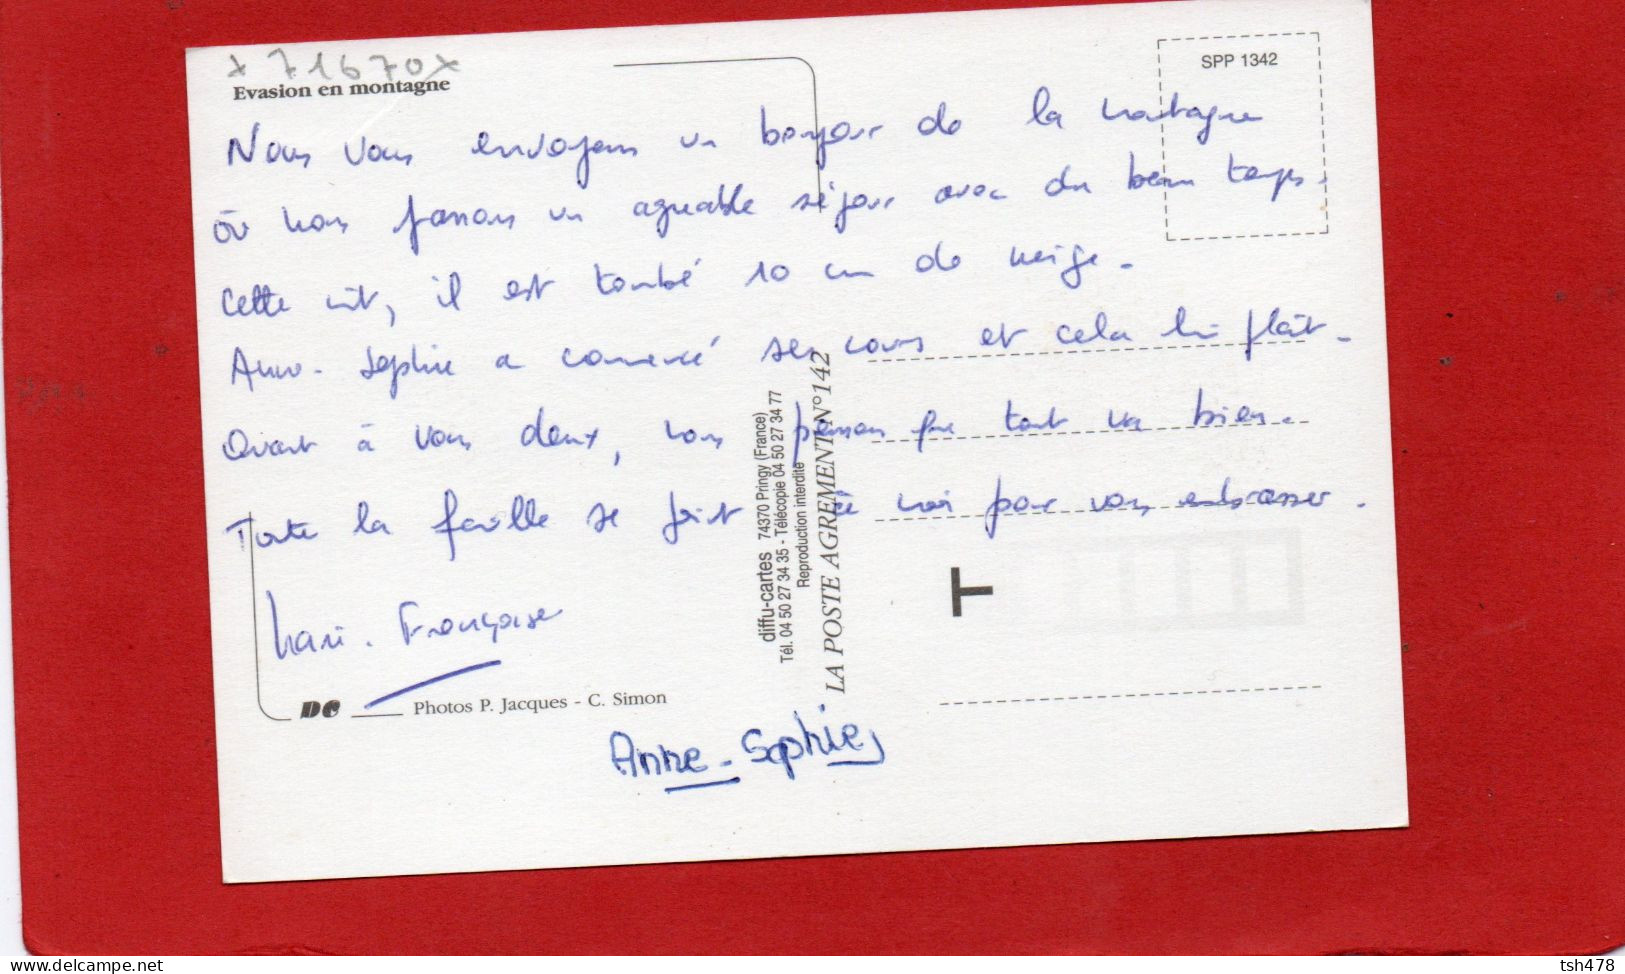 * 71670 *
Evasion en montagne
SPP 1342
Nous vous envoyons un bonjour de la montagne
où nous passons un agréable séjour avec du beau temps.
Cette nuit, il est tombé 10 cm de neige.
Anne-Sophie a commencé ses cours et cela lui plaît.
Quant à vous deux, nous pensons que tout va bien.
Toute la famille se joint à moi pour vous embrasser.
Marie-Françoise
diffu-cartes 74370 Pringy (France)
Tél. 04 50 27 34 35 - Télécopie 04 50 27 34 77
Reproduction interdite
LA POSTE AGREMENT N°142
T
DC
Photos P. Jacques - C. Simon
Anne-Sophie
www.delcampe.net
tsh478